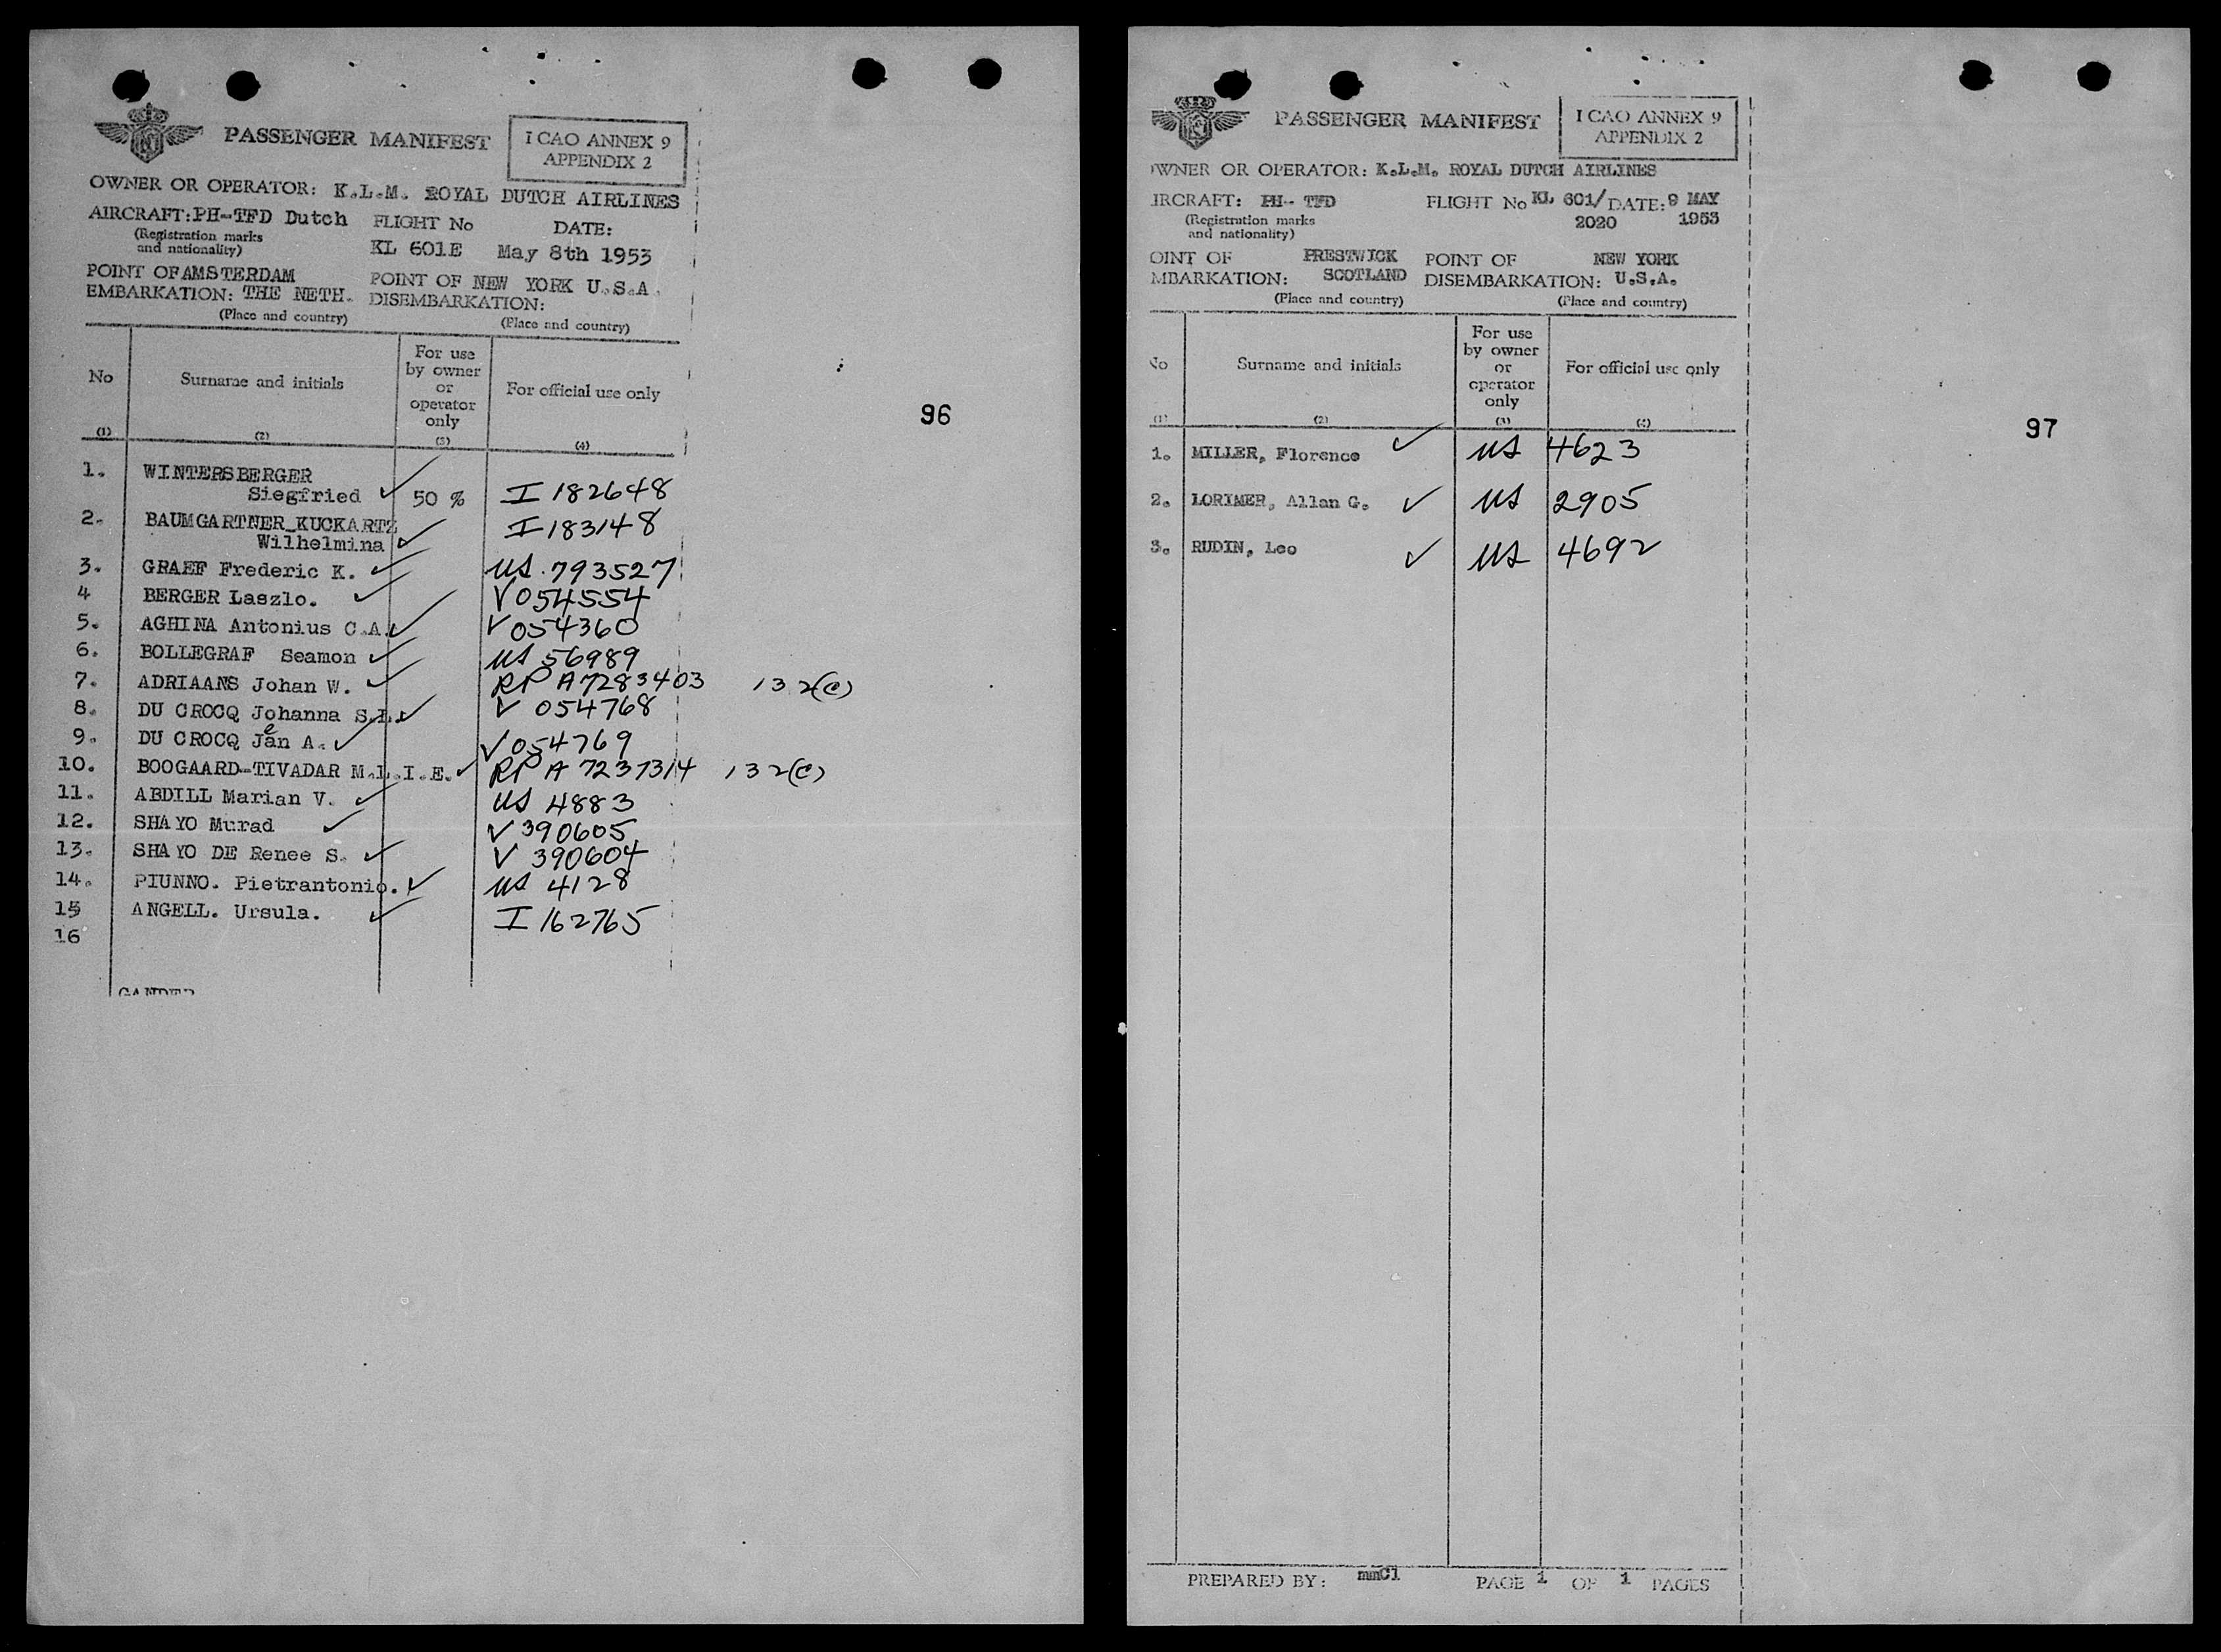 PASSENGER MANIFEST
I CAO ANNEX 9
APPENDIX 2
OWNER OR OPERATOR: K.L.M. ROYAL DUTCH AIRLINES
AIRCRAFT: PH-TFD Dutch FLIGHT No DATE:
(Registration marks
and nationality) KL 601E May 8th 1953
POINT OF AMSTERDAM POINT OF NEW YORK U.S.A.
EMBARKATION: THE NETH. DISEMBARKATION:
(Place and country) (Place and country)
No Surname and initials For use by owner or operator only For official use only
(1) (2) (3) (4)
96
1. WINTERSBERGER
Siegfried ✓ 50 % I 182648
2. BAUMGARTNER_KUCKARTZ
Wilhelmina ✓ I 183148
3. GRAEF Frederic K. ✓ US. 793527
4 BERGER Laszlo. ✓ V 054554
5. AGHINA Antonius C.A. ✓ V 054360
6. BOLLEGRAF Seamon ✓ US 56989
7. ADRIAANS Johan W. ✓ RP A7283403 132(c)
8. DU CROCQ Johanna S.L. ✓ V 054768
9. DU CROCQ Jean A. ✓ V 054769
10. BOOGAARD-TIVADAR M.L.I.E. ✓ RP A 7237314 132(c)
11. ABDILL Marian V. ✓ US 4883
12. SHAYO Murad ✓ V 390605
13. SHAYO DE Renee S. ✓ V 390604
14. PIUNNO. Pietrantonio. ✓ US 4128
15 ANGELL. Ursula. ✓ I 162765
16
GANDER
PASSENGER MANIFEST
I CAO ANNEX 9
APPENDIX 2
OWNER OR OPERATOR: K.L.M. ROYAL DUTCH AIRLINES
IRCRAFT: PH-TFD FLIGHT No KL 601/ DATE: 9 MAY
(Registration marks
and nationality) 2020 1953
OINT OF PRESTWICK POINT OF NEW YORK
MBARKATION: SCOTLAND DISEMBARKATION: U.S.A.
(Place and country) (Place and country)
No Surname and initials For use by owner or operator only For official use only
(1) (2) (3) (4)
97
1. MILLER, Florence ✓ US 4623
2. LORIMER, Allan G. ✓ US 2905
3. RUDIN, Leo ✓ US 4692
PREPARED BY: mmCl PAGE 1 OF 1 PAGES